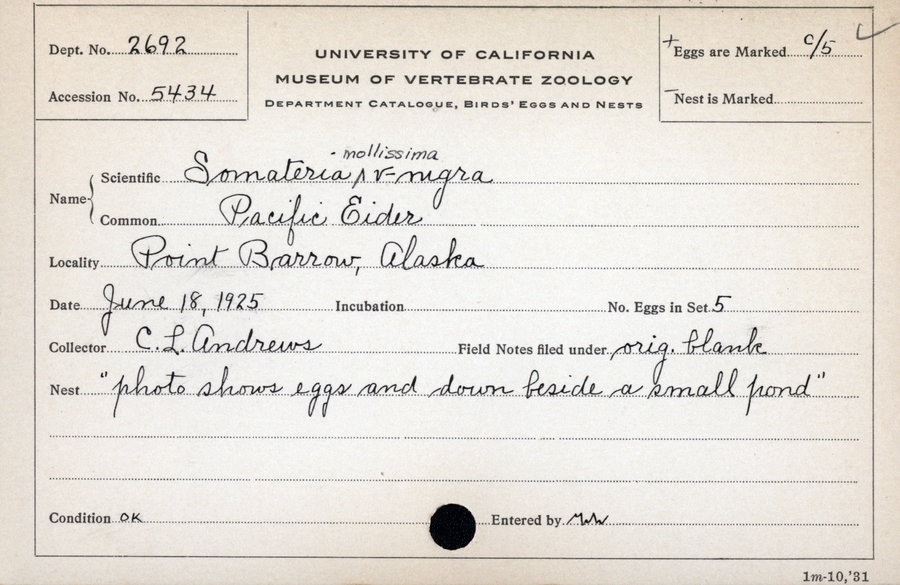 Dept. No. 2692
Accession No. 5434
UNIVERSITY OF CALIFORNIA
MUSEUM OF VERTEBRATE ZOOLOGY
DEPARTMENT CATALOGUE, BIRDS' EGGS AND NESTS
+Eggs are Marked c/5
-Nest is Marked
mollissima
Name Scientific Somateria v-nigra
Common Pacific Eider
Locality Point Barrow, Alaska
Date June 18, 1925 Incubation No. Eggs in Set 5
Collector C. L. Andrews Field Notes filed under orig. blank
Nest "photo shows eggs and down beside a small pond"
Condition OK Entered by
1m-10,'31